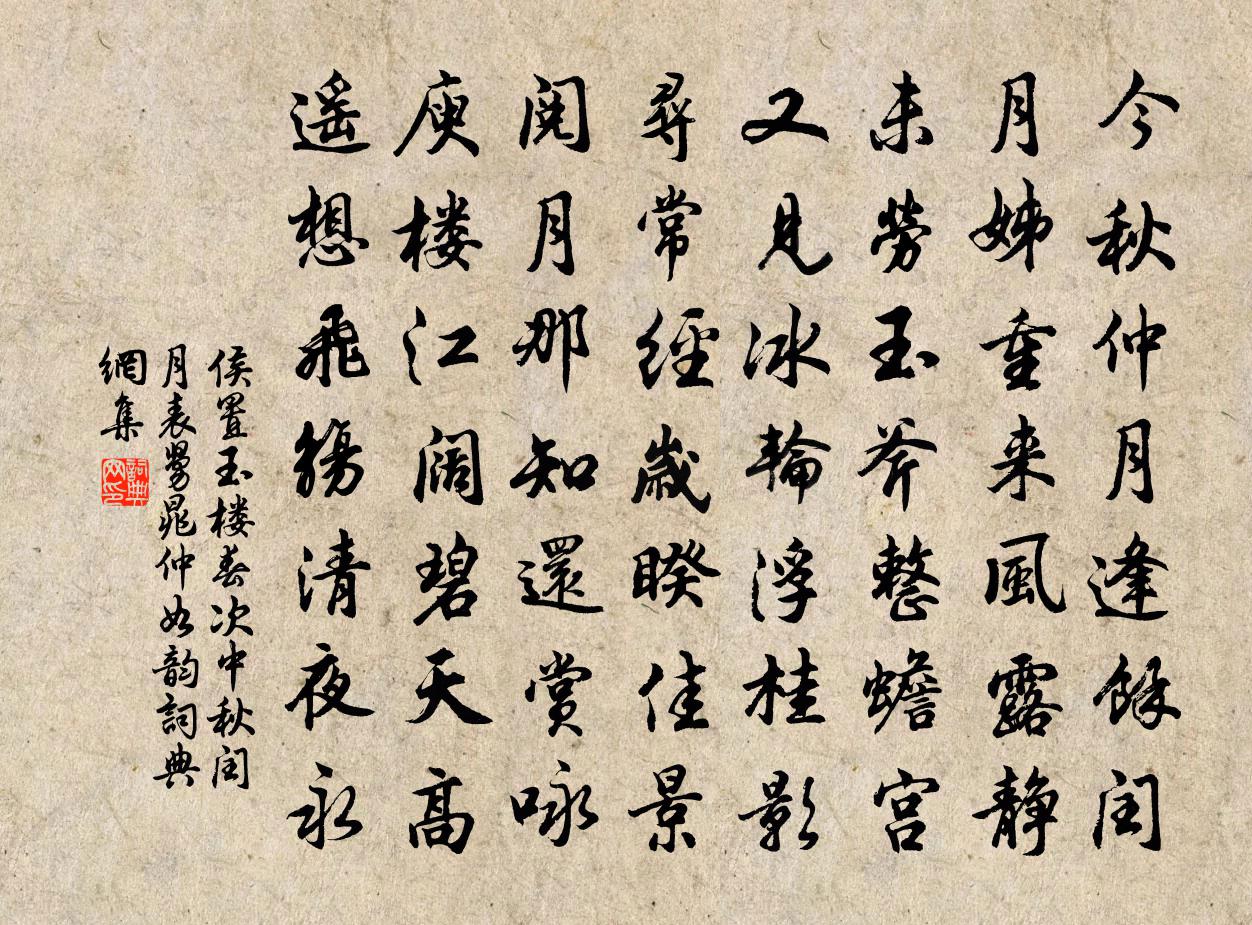 今秋仲月逢餘闰
月姊重来風露静
未勞玉斧整蟾宫
又見冰輪浮桂影
尋常經歲睽佳景
阅月那知還賞咏
庾楼江阔碧天高
遥想飛觴清夜永
侯置玉楼春次中秋闰
月表舅晁仲如韵詞典
網集
詞典网印